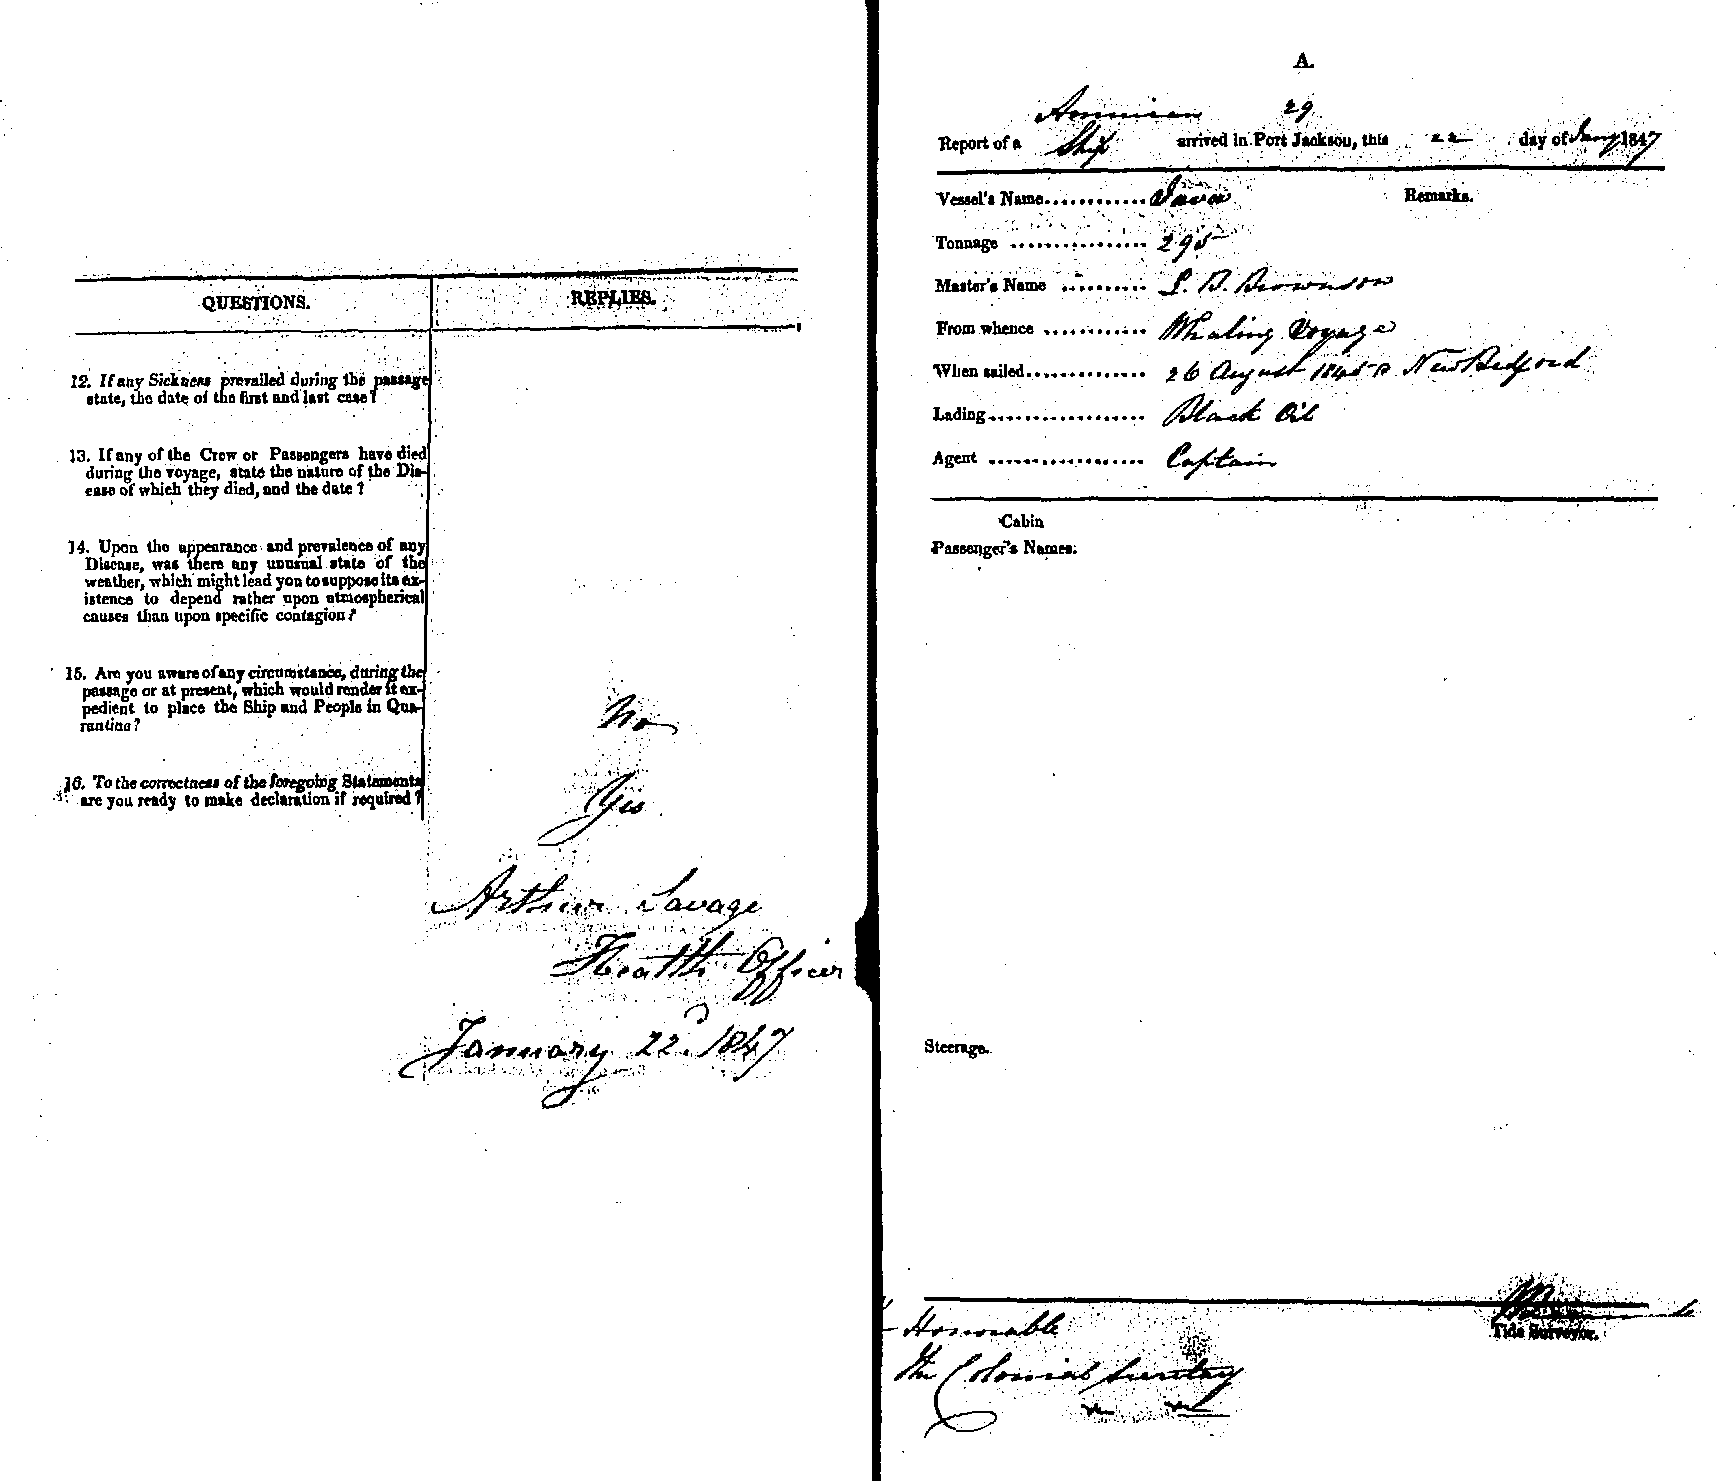 QUESTIONS. REPLIES.
12. If any Sickness prevailed during the passage
state, the date of the first and last case?
13. If any of the Crew or Passengers have died
during the voyage, state the nature of the Dis-
ease of which they died, and the date?
14. Upon the appearance and prevalence of any
Disease, was there any unusual state of the
weather, which might lead you to suppose its ex-
istence to depend rather upon atmospherical
causes than upon specific contagion?
15. Are you aware of any circumstance, during the
passage or at present, which would render it ex-
pedient to place the Ship and People in Qua-
rantine?
No
16. To the correctness of the foregoing Statements
are you ready to make declaration if required?
Yes
Arthur Savage
Health Officer
January 22d 1847
A.
American 29
Report of a Ship arrived in Port Jackson, this 22 day of Jany 1847
Vessel's Name............ Java Remarks.
Tonnage ................ 295
Master's Name .......... L. B. Brownson
From whence ............ Whaling Voyage
When sailed.............. 26 August 1845 New Bedford
Lading.................. Black Oil
Agent .................. Captain
Cabin
Passenger's Names.
Steerage.
Tide Surveyor.
Honorable
The Colonial Secretary